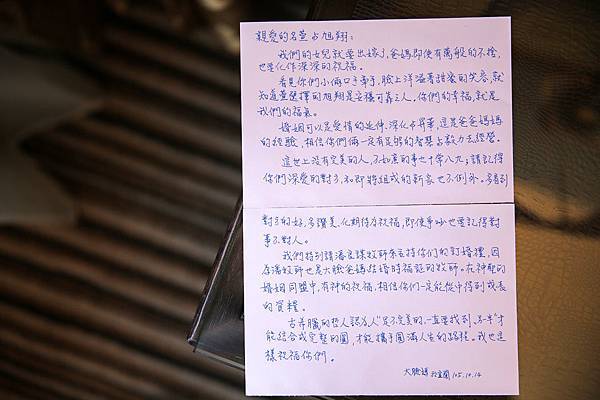 親愛的名萱與旭翔:
我們的女兒就要出嫁了,爸媽即使有萬般的不捨,
也要化作深深的祝福。
看見你們小倆口手牽手,臉上洋溢著甜蜜的笑容,就
知道萱選擇的旭翔是安穩可靠之人。你們的幸福,就是
我們的福氣。
婚姻可以是愛情的延伸、深化與昇華,這是爸爸媽媽
的經驗,相信你們倆一定有足夠的智慧與毅力去經營。
這世上沒有完美的人,不如意的事也十常八九;請記得
你們深愛的對方,和即將組成的新家也不例外。多看到
對方的好,多讚美、化期待為祝福,即使爭吵也要記得對
事不對人。
我們特別請潘
牧師來主持你們的訂婚禮,因
為潘牧師也是大臉爸媽結婚時福証的牧師。在神聖的
婚姻同盟中,有神的祝福,相信你們一定能從中得到成長
的資糧。
古希臘的哲人認為,人是不完美的,一直要找到另一半才
能結合成完整的圓,才能攜手圓滿人生的路程。我也這
樣祝福你們。
大臉媽
105.10.14